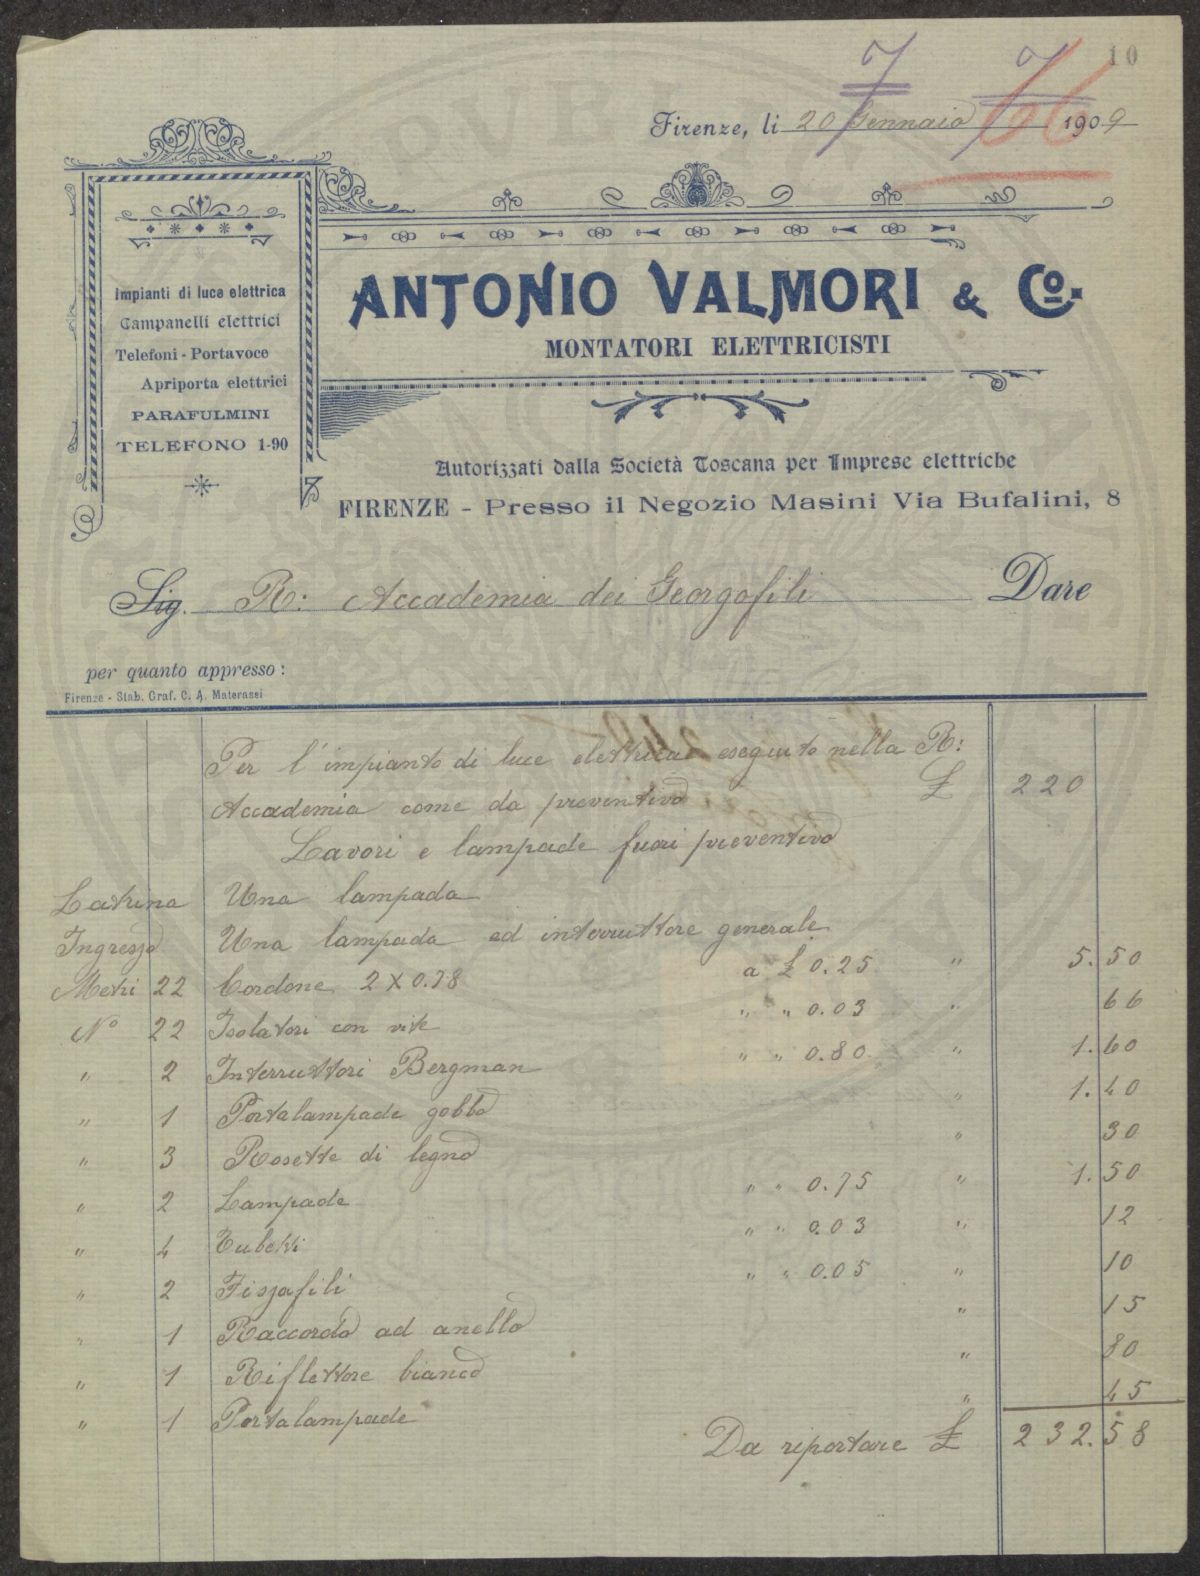 10
7 7 66
Firenze, li 20 Gennaio 1909
Impianti di luce elettrica
Campanelli elettrici
Telefoni - Portavoce
Apriporta elettrici
PARAFULMINI
TELEFONO 1-90
ANTONIO VALMORI & Co.
MONTATORI ELETTRICISTI
Autorizzati dalla Società Toscana per Imprese elettriche
FIRENZE - Presso il Negozio Masini Via Bufalini, 8
Sig. R: Accademia dei Georgofili Dare
per quanto appresso:
Firenze - Stab. Graf. C. A. Materassi
Per l'impianto di luce elettrica eseguito nella R:
Accademia come da preventivo £ 220
Lavori e lampade fuori preventivo
Latrina Una lampada
Ingresso Una lampada ed interruttore generale
Metri 22 Cordone 2 X 0.78 a £ 0.25 " 5.50
No 22 Isolatori con vite " " 0.03 " 66
" 2 Interruttori Bergman " " 0.80 " 1.60
" 1 Portalampade gobbo " 1.40
" 3 Rosette di legno " 30
" 2 Lampade " " 0.75 " 1.50
" 4 Tubetti " " 0.03 " 12
" 2 Fissafili " " 0.05 " 10
" 1 Raccordo ad anello " 15
" 1 Riflettore bianco " 80
" 1 Portalampade " 45
Da reportare £ 232.58